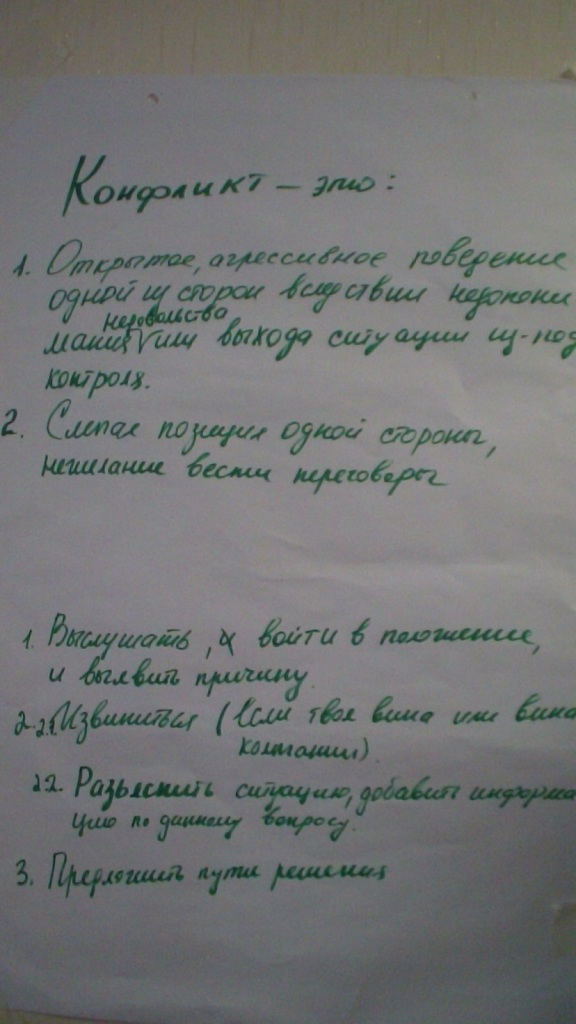 Конфликт – это:
1. Открытое, агрессивное поведение
одной из сторон вследствии недопони
недовольства
мания или выхода ситуации из-под
контроля.
2. Слепая позиция одной стороны,
нежелание вести переговоры
1. Выслушать, войти в положение,
и выявить причину
2. 2.1. Извиниться (если твоя вина или вина
компании).
2.2. Разъяснить ситуацию, добавить информа
цию по данному вопросу.
3. Предложить пути решения